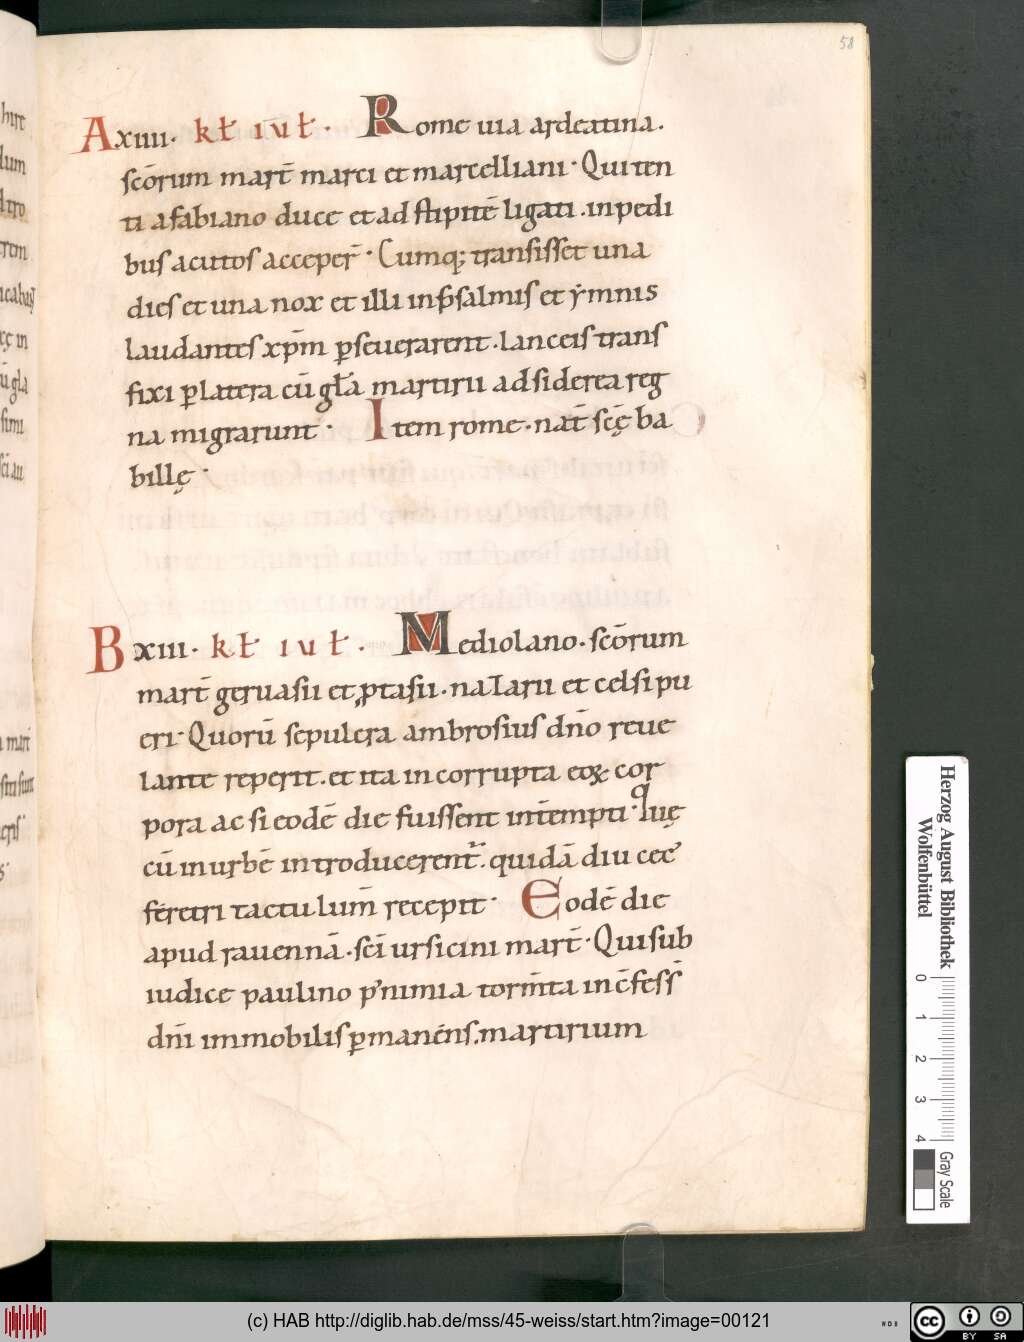 58
A xiiii· kł iuł· Rome uia ardeatina.
scōrum mart̄ marci et marcelliani· Qui ten
ti a fabiano duce et ad stipitē ligati .in pedi
bus acutos acceper̄· Cumq; transisset una
dies et una nox et illi in p̄salmis et ẏmnis
laudantes xp̄m p̱seuerarent·lanceis trans
fixi p̱ latera cū gła martirii ad siderea reg
na migrarunt· Item rome·nat̄ scę̄ ba
billę·
B xiii· kł iuł· Mediolano·scōrum
mart̄ geruasii et ꝓtasii·naZarii et celsi pu
eri·Quorū sepulcra ambrosius dn̄o reue
lante reperit.et ita incorrupta eoꝝ cor
pora ac si eodē die fuissent int̄empti·Quę
cū in urbē introducerent̄.quidā diu cec̄
feretri tactu lum̄ recepit· Eodē die
apud rauennā·sci̅ ursicini mart̄·Qui sub
iudice paulino p̓ nimia torm̄ta in c̄fess̄
dn̄i immobilis p̱manens.martirium
hirc
dum
rem
icabus
ū gła
simi
a mart̄
Herzog August Bibliothek
Wolfenbüttel
0 1 2 3 4
Gray Scale
(c) HAB http://diglib.hab.de/mss/45-weiss/start.htm?image=00121
WDB
cc BY SA